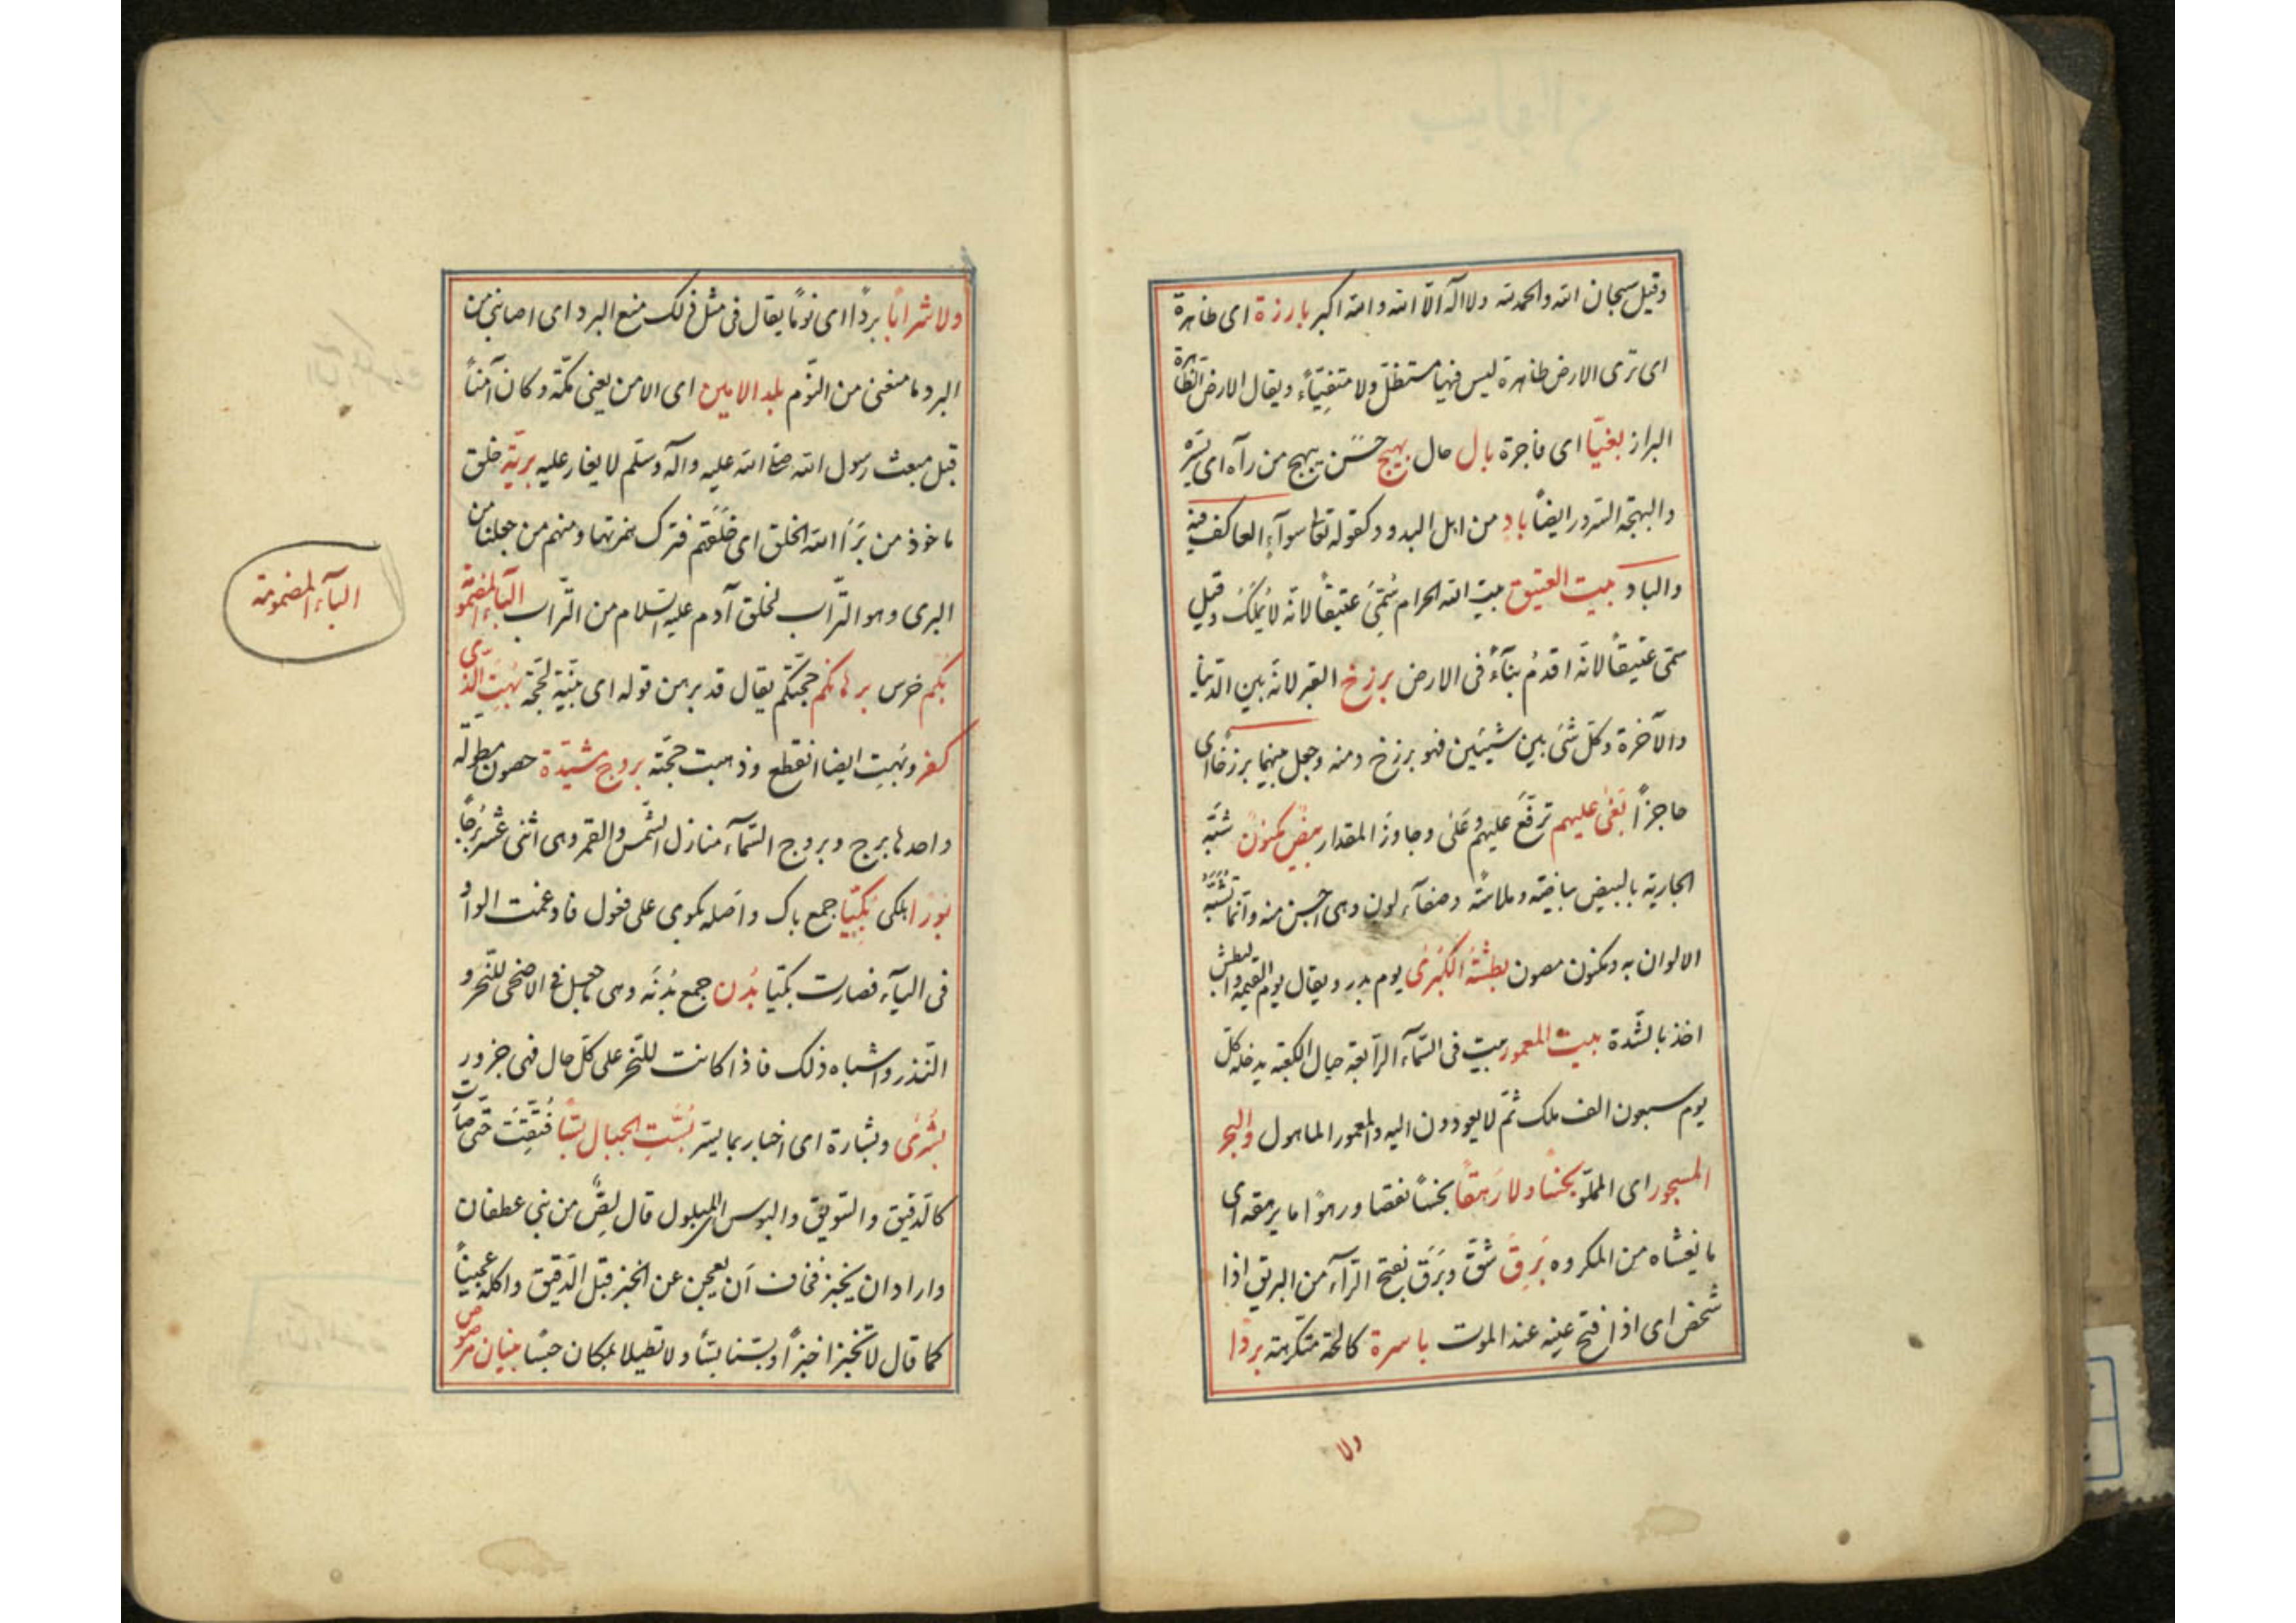 وقیل سبحان الله والحمد لله ولا اله الّا الله والله اکبر بارزة ای ظاهرة
ای تری الارض ظاهرة لیس فیها مستظلّ ولا متفیّاء ویقال الارض الظاهرة
البراز بغیّا ای فاجرة بال حال بهیج حسن یبهج من رآه ای یسّره
والبهجة السّرور ایضاً باد من اهل البدو وکقوله تعا سوآء العاکف فیه
والباد بیت العتیق بیت الله الحرام سُمّی عتیقاً لانّه لا یُملک وقیل
سمّی عتیقاً لانّه اقدمُ بنآءً فی الارض برزخ القبر لانّه بین الدّنیا
والآخرة وکلّ شئ بین شیئین فهو برزخ ومنه وجعل بینهما برزخاً ای
حاجزاً بغی علیهم ترفّع علیهم وعَلی وجاوز المقدار بیض مکنون شبّه
الجاریة بالبیض بیاضیة وملاسة وصفآء لون وهی احسن منه وانّما تشبّه
الالوان به ومکنون مصون بطشة الکبری یوم بدر ویقال یوم القیمة والبطش
اخذ بالشّدة بیت المعمور بیت فی السّمآء الرّابعة حیال الکعبة یدخله کلّ
یوم سبعون الف ملک ثمّ لا یعودون الیه والمعمور الماهول والبحر
المسجور ای المملوّ بخساً ولا رهقاً بخساً نقصا ورهقاً ما یرهقه ای
ما یغشاه من المکروه بَرِقَ شقّ وبَرَق بفتح الرّآء من البریق اذا
شخص ای اذا فتح عینه عند الموت باسرة کالحة متکرهة بردا
ولا
ولا شراباً برداً ای نوماً یقال فی مثل ذلک منع البرد ای اصابنی من
البرد ما منعنی من النّوم بلد الامین ای الامن یعنی مکّة وکان آمناً
قبل مبعث رسول الله صلی الله علیه وآله وسلّم لا یغار علیه بریّة خلق
ماخوذ من بَرَأ الله الخلق ای خلقهم فترک همزتها ومنهم من جعلنا من
البری وهو التّراب لخلق آدم علیه السّلام من التّراب البآء المضمو
البآء المضمومة
بکم خرس برهانکم حجّتکم یقال قد برهن قوله ای بیّنه لحجّة بُهِتَ الذی
کفر وبُهِت ایضا انقطع وذهبت حجّته بروج مشیّدة حصون مطوله
واحدها برج وبروج السّمآء منازل الشّمس والقمر وهی اثنی عشر برجاً
بوراً هلکی بُکیّا جمع باک واصله بکوی علی فعول فادغمت الواو
فی الیآء فصارت بکیّا بُدْن جمع بدنة وهی ما جعل فی الاضحی للنّحر و
النّذر واشباه ذلک فاذا کانت للنّحر علی کلّ حال فهی جزور
بُشری وبشارة ای اخبار بما یسرّ بُسّت الجبال بسّاً فُتّتت حتّی صارت
کالدّقیق والسّویق والبوس المبلول قال لصّ من بنی غطفان
واراد ان یخبز فخاف ان یعجن عن الخبز قبل الدّقیق واکله عجیناً
کما قال لا تخبزا خبزاً وبسّا بسّاً ولا تطیلا بمکان حبسا بنیان مرصوص